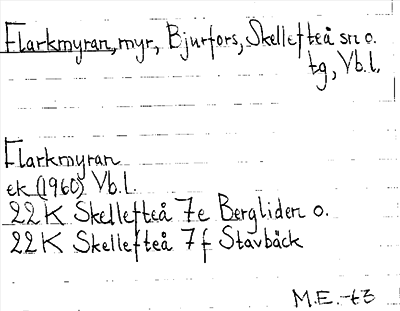 Flarkmyran, myr, Bjurfors, Skellefteå sn o.
tg, Vb.l.
Flarkmyran
ek (1960) Vb.l.
22K Skellefteå 7e Bergliden o.
22K Skellefteå 7f Stavbäck
M.E. -t3